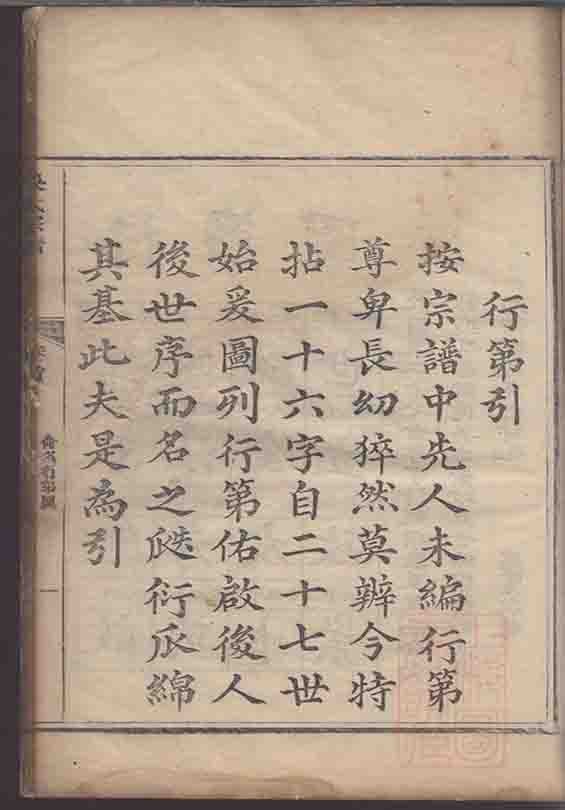 行第引
按宗譜中先人未編行第
尊卑長幼猝然莫辨今特
拈一十六字自二十七世
始爰圖列行第佑啟後人
後世序而名之瓞衍瓜綿
其基此夫是為引
命名行第圖
一